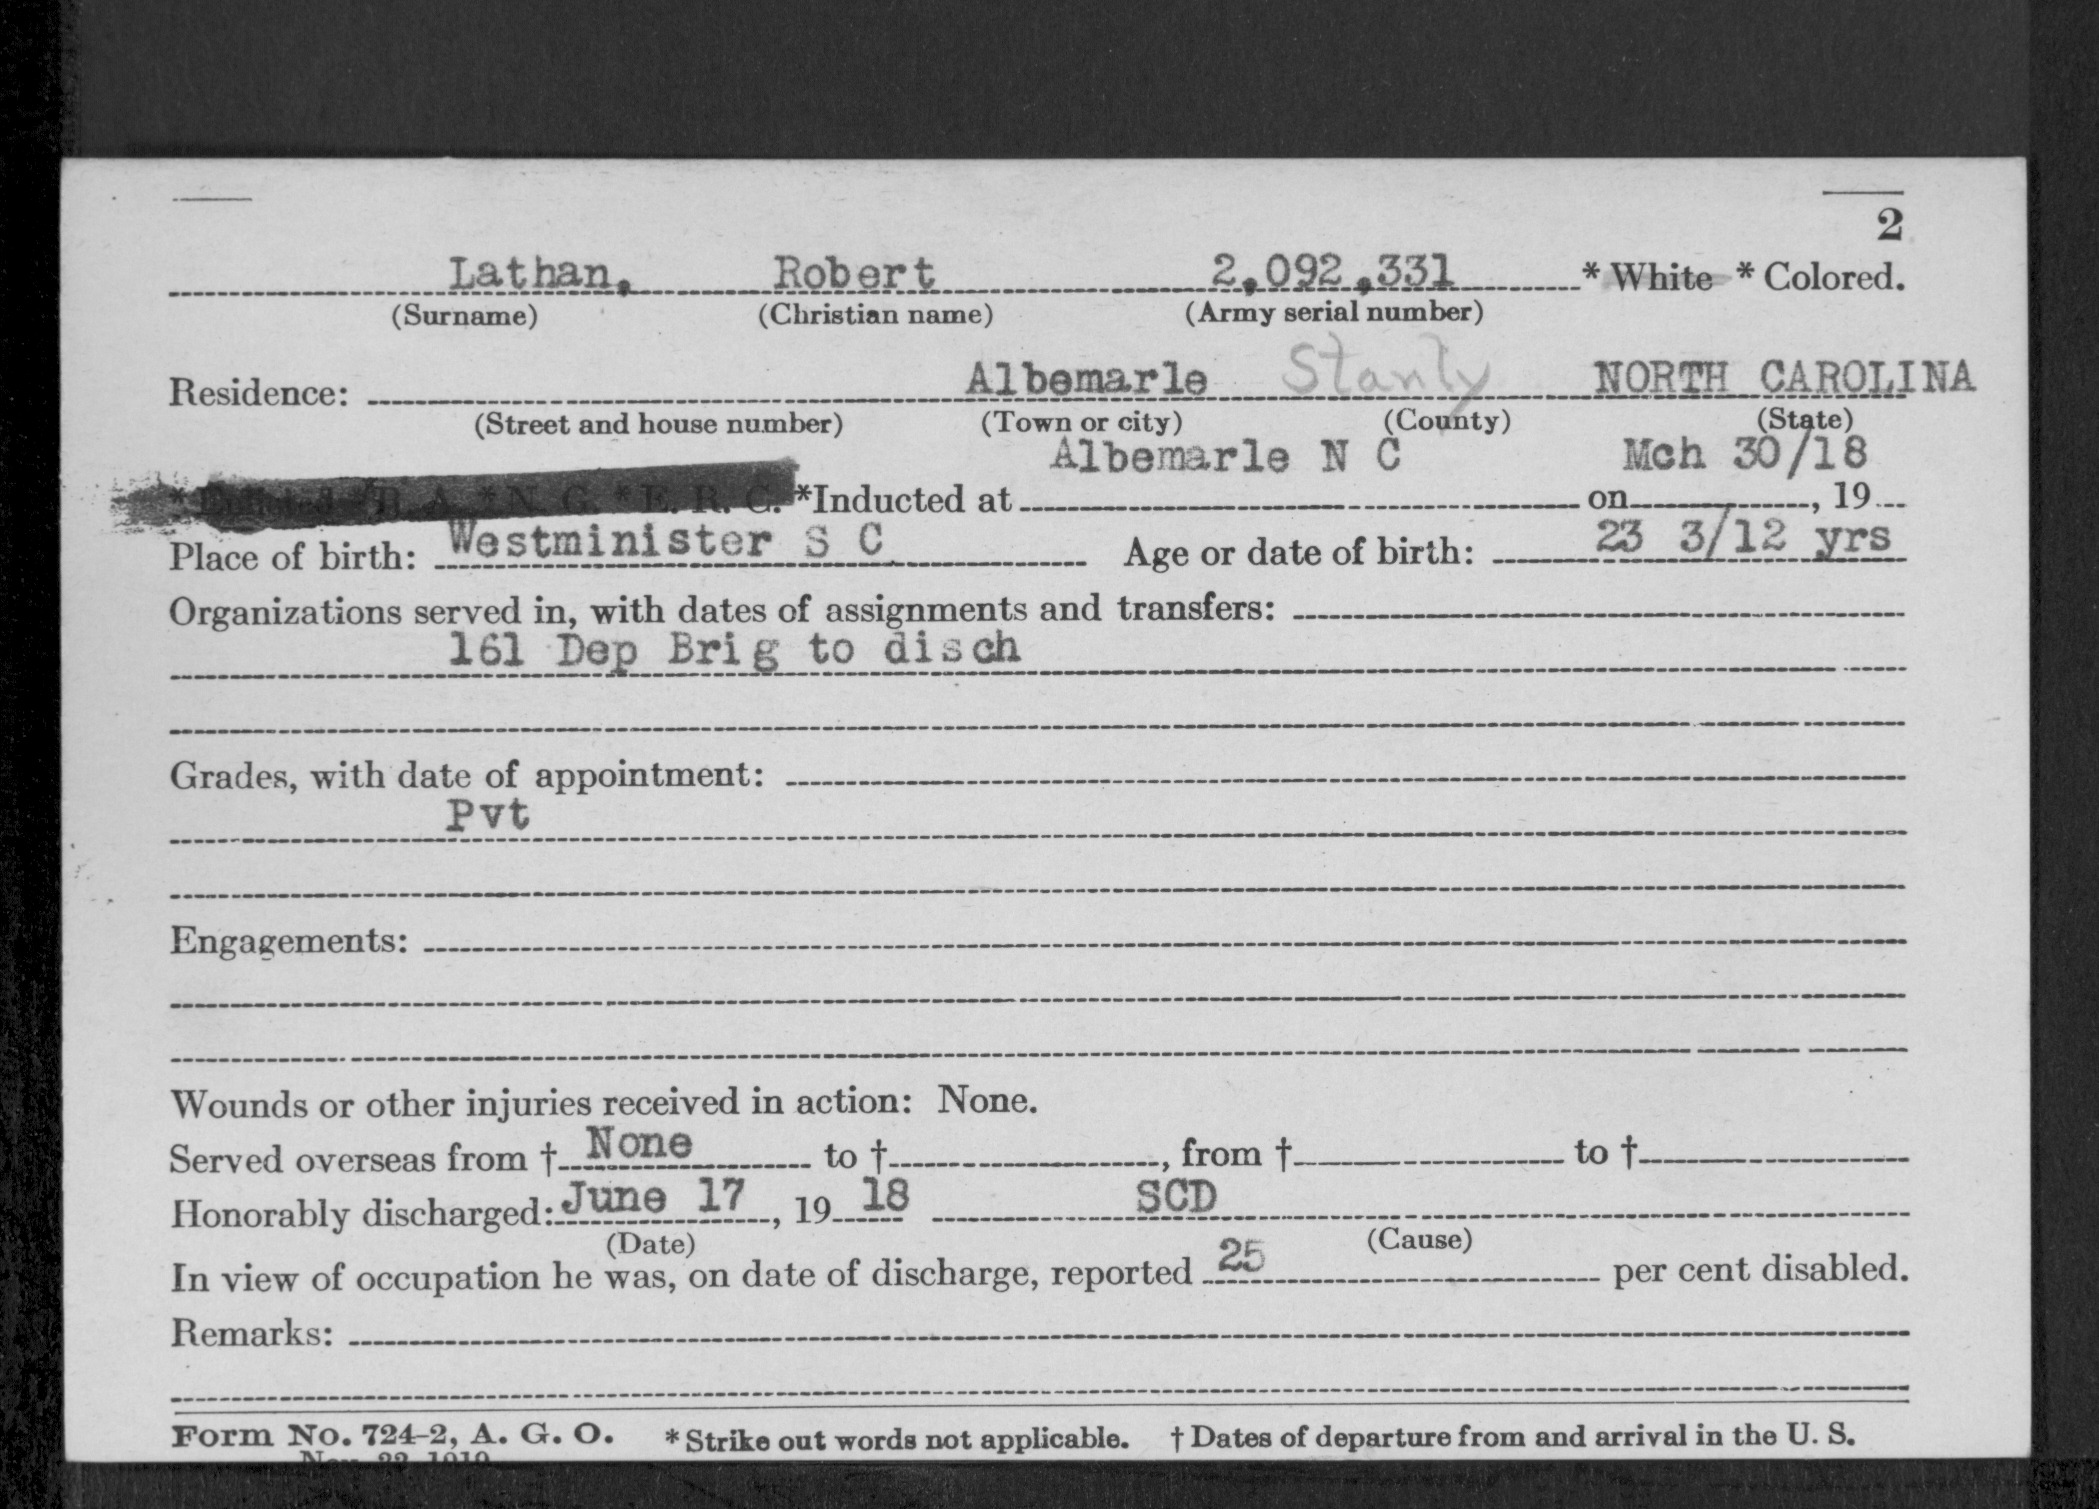 2
Lathan, Robert 2,092,331 * White * Colored.
(Surname) (Christian name) (Army serial number)
Residence: Albemarle Stanly NORTH CAROLINA
(Street and house number) (Town or city) (County) (State)
Albemarle N C Mch 30/18
* Enlisted * R. A. * N. G. * E. R. C. *Inducted at on , 19
Place of birth: Westminister S C Age or date of birth: 23 3/12 yrs
Organizations served in, with dates of assignments and transfers:
161 Dep Brig to disch
Grades, with date of appointment:
Pvt
Engagements:
Wounds or other injuries received in action: None.
Served overseas from † None to † , from † to †
Honorably discharged: June 17, 19 18 SCD
(Date) (Cause)
In view of occupation he was, on date of discharge, reported 25 per cent disabled.
Remarks:
Form No. 724-2, A. G. O. * Strike out words not applicable. † Dates of departure from and arrival in the U. S.
Nov. 22 1919